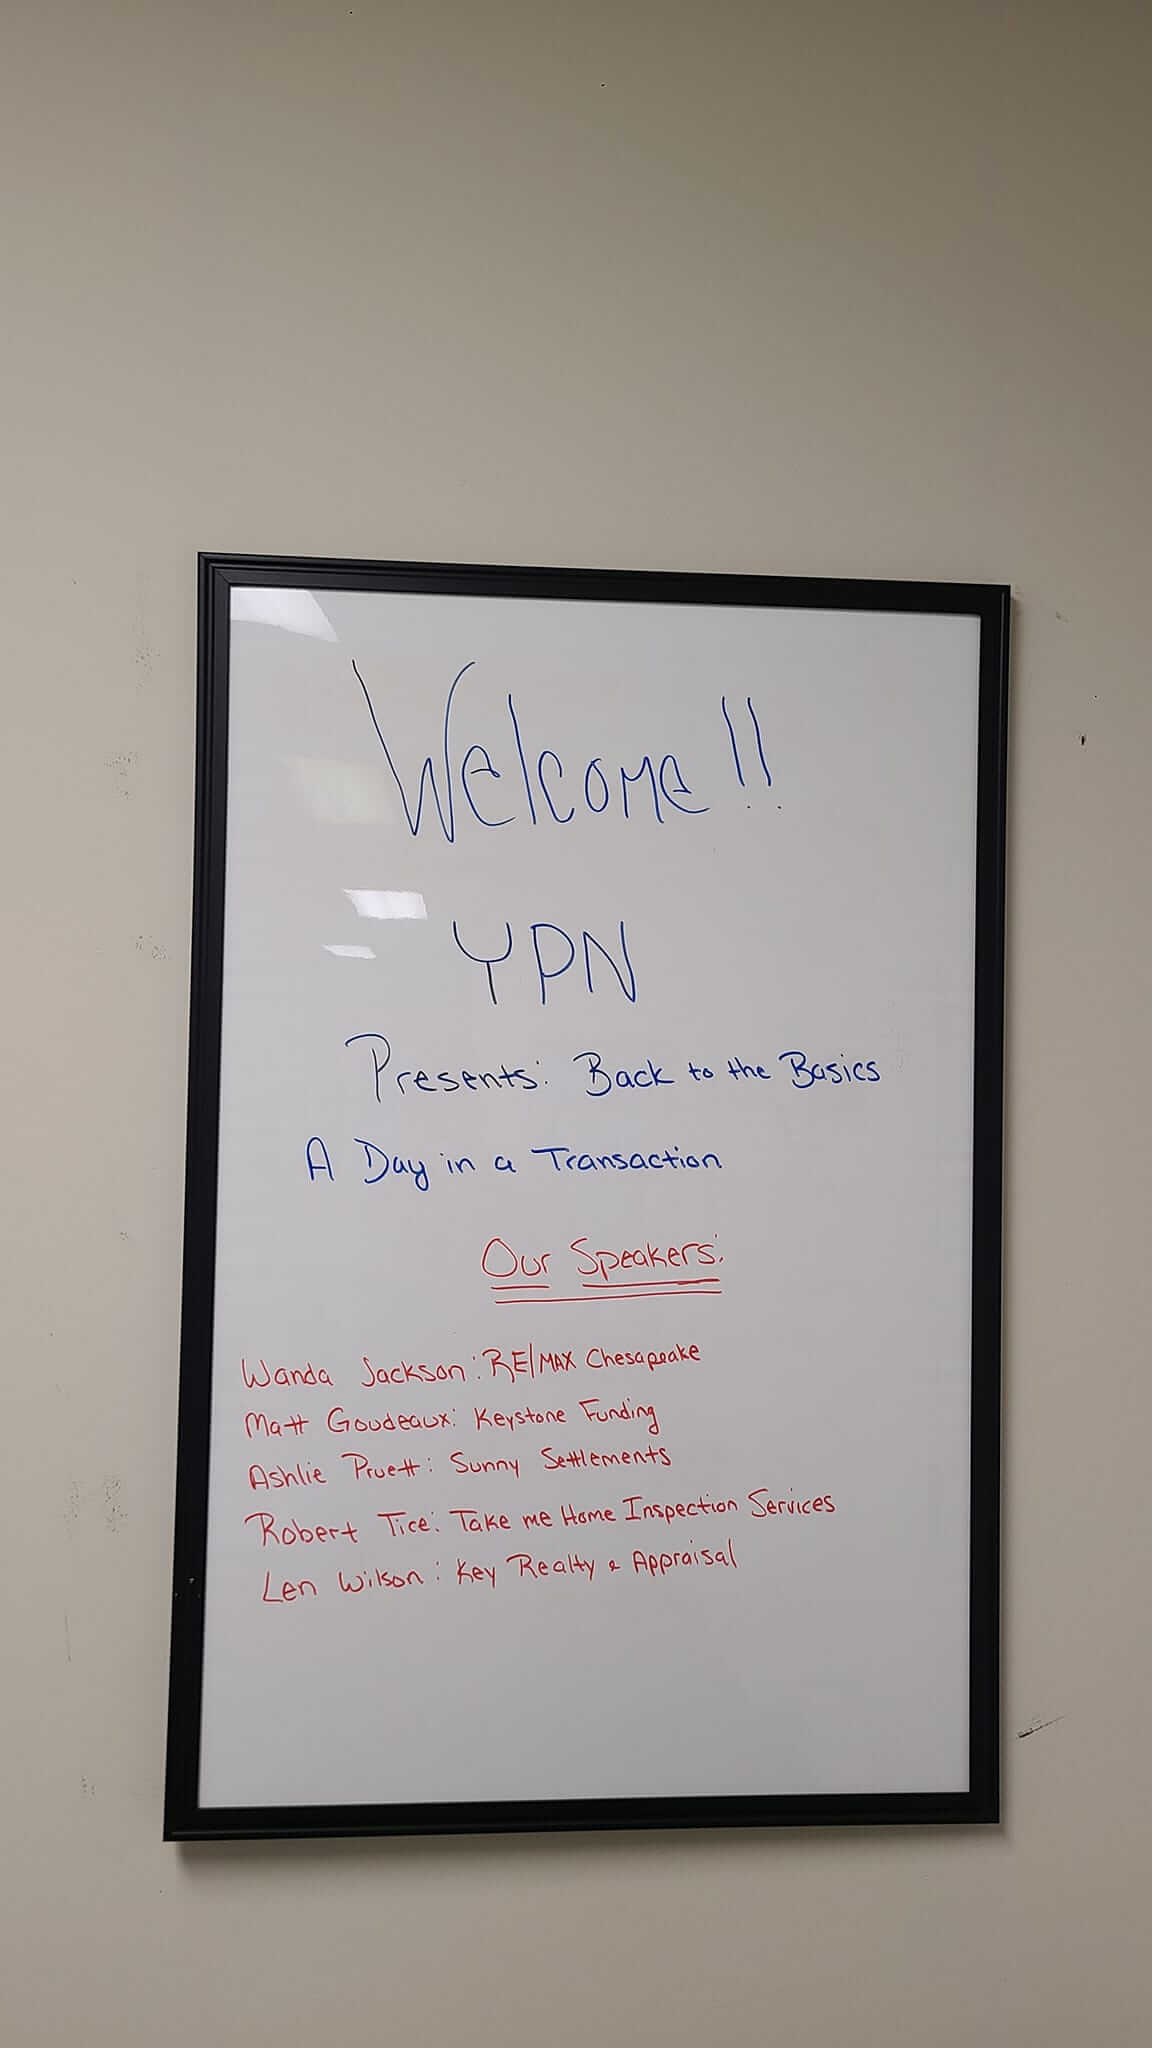 Welcome!!
YPN
Presents: Back to the Basics
A Day in a Transaction
Our Speakers:
Wanda Jackson: RE/MAX Chesapeake
Matt Goudeaux: Keystone Funding
Ashlie Pruett: Sunny Settlements
Robert Tice: Take me Home Inspection Services
Len Wilson: Key Realty & Appraisal